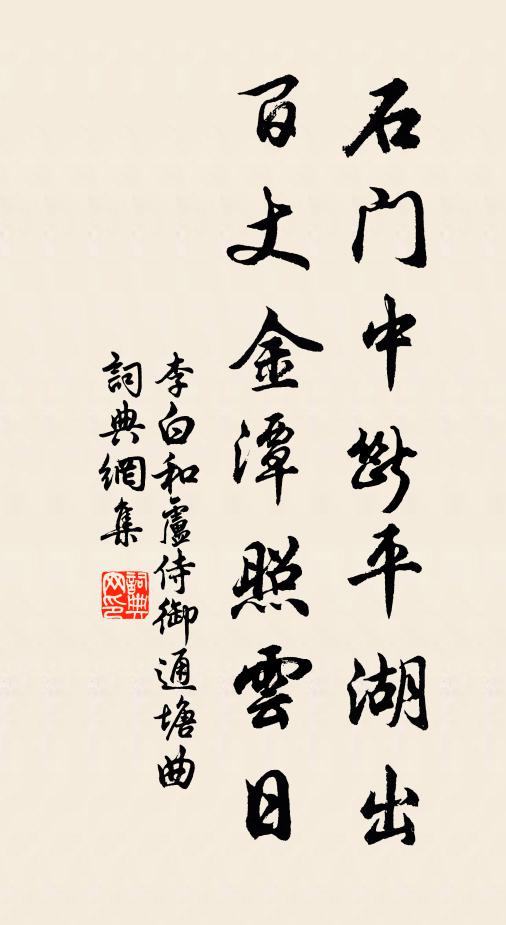 石门中断平湖出
百丈金潭照雲日
李白和盧侍御通塘曲
詞典網集
詞典网印